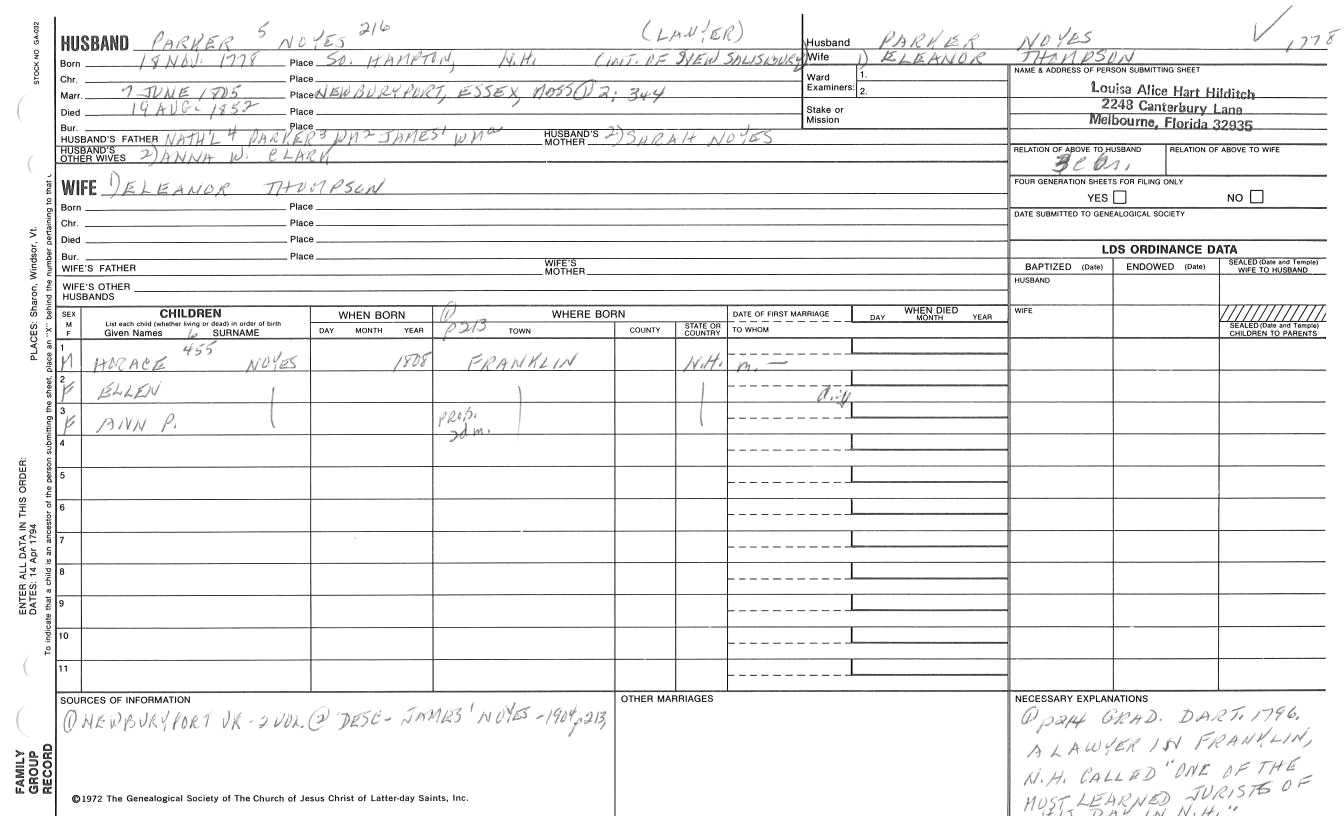 STOCK NO. GA-032
PLACES: Sharon, Windsor, Vt.
ENTER ALL DATA IN THIS ORDER:
DATES: 14 Apr 1794
To indicate that a child is an ancestor of the person submitting the sheet, place an "X" behind the number pertaining to that
FAMILY
GROUP
RECORD
HUSBAND PARKER 5 NOYES 216 (LAWYER)
Born 18 NOV. 1778 Place SO. HAMPTON, N.H. (INT. OF NEW SALISBURY)
Chr. Place
Marr. 7 JUNE 1805 Place NEWBURYPORT, ESSEX, MASS ① 2; 344
Died 19 AUG. 1852 Place
Bur. Place
HUSBAND'S FATHER NATH'L 4 PARKER 3 WM 2 JAMES 1 WM a HUSBAND'S MOTHER 2) SARAH NOYES
HUSBAND'S OTHER WIVES 2) ANNA W. CLARK
Husband PARKER NOYES 1778
Wife 1) ELEANOR THOMPSON
Ward Examiners: 1.
2.
Stake or Mission
NAME & ADDRESS OF PERSON SUBMITTING SHEET
Louisa Alice Hart Hilditch
2248 Canterbury Lane
Melbourne, Florida 32935
RELATION OF ABOVE TO HUSBAND RELATION OF ABOVE TO WIFE
FOUR GENERATION SHEETS FOR FILING ONLY
YES NO
DATE SUBMITTED TO GENEALOGICAL SOCIETY
WIFE 1) ELEANOR THOMPSON
Born Place
Chr. Place
Died Place
Bur. Place
WIFE'S FATHER WIFE'S MOTHER
WIFE'S OTHER HUSBANDS
LDS ORDINANCE DATA
BAPTIZED (Date) ENDOWED (Date) SEALED (Date and Temple) WIFE TO HUSBAND
HUSBAND
WIFE
SEALED (Date and Temple) CHILDREN TO PARENTS
SEX M F CHILDREN WHEN BORN ① p213 WHERE BORN DATE OF FIRST MARRIAGE WHEN DIED
List each child (whether living or dead) in order of birth
Given Names SURNAME DAY MONTH YEAR TOWN COUNTY STATE OR COUNTRY TO WHOM DAY MONTH YEAR
1 M HORACE 6 455 NOYES 1808 FRANKLIN N.H. m. —
2 F ELLEN
3 F ANN P. PROB. 2d m.
4
5
6
7
8
9
10
11
SOURCES OF INFORMATION
① NEWBURYPORT VR - 2 VOL. ② DESC - JAMES 1 NOYES - 1904 p213,
©1972 The Genealogical Society of The Church of Jesus Christ of Latter-day Saints, Inc.
OTHER MARRIAGES
NECESSARY EXPLANATIONS
① p214 GRAD. DART. 1796.
A LAWYER IN FRANKLIN,
N.H. CALLED "ONE OF THE
MOST LEARNED JURISTS OF
HIS DAY IN N.H."